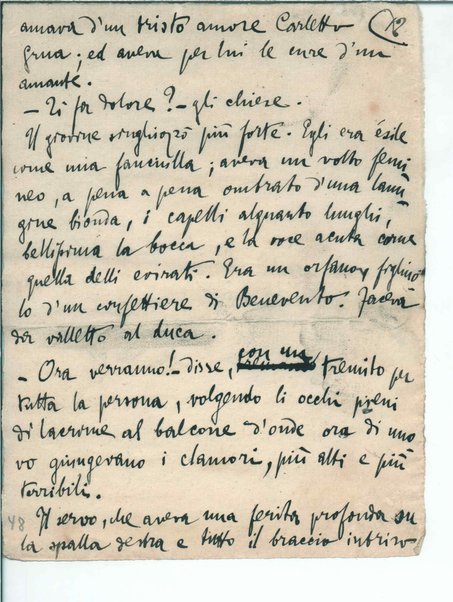 amava d'un tristo amore Carletto 12
Grua; ed aveva per lui le cure d'un
amante.
– Ti fa dolore? – gli chiese.
Il giovine singhiozzò più forte. Egli era ésile
come una fanciulla; aveva un volto femi
neo, a pena a pena ombrato d'una lanu
gine bionda, i capelli alquanto lunghi,
bellissima la bocca, e la voce acuta come
quella delli evirati. Era un orfano, figliuo
lo d'un confettiere di Benevento. Faceva
da valletto al duca.
– Ora verranno! – disse, con un tremito per
tutta la persona, volgendo li occhi pieni
di lacrime al balcone d'onde ora di nuo
vo giungevano i clamori, più alti e più
terribili.
48 Il servo, che aveva una ferita profonda su
la spalla destra e tutto il braccio intriso